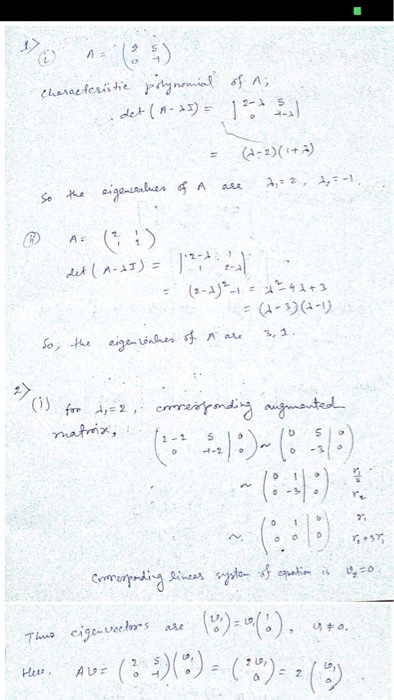 1>
(i) A = (2 5
0 -1)
characteristic polynomial of A;
det (A - λI) = |2-λ 5
0 -1-λ|
= (λ-2)(1+λ)
So the eigenvalues of A are λ₁=2, λ₂=-1.
(ii) A = (2 1
1 2)
det (A-λI) = |2-λ 1
1 2-λ|
= (2-λ)²-1 = λ²-4λ+3
= (λ-3)(λ-1)
So, the eigenvalues of A are 3, 1.
2>
(i) for λ₁=2, corresponding augmented
matrix, (2-2 5 | 0
0 -1-2 | 0) ~ (0 5 | 0
0 -3 | 0)
~ (0 1 | 0
0 -3 | 0) r₂
~ (0 1 | 0
0 0 | 0) r₁
Corresponding linear system of equation is v₂=0.
Thus eigenvectors are (v₁
0) = v₁(1
0), v₁≠0.
Here, Av = (2 5
0 -1)(v₁
0) = (2v₁
0) = 2(v₁
0)